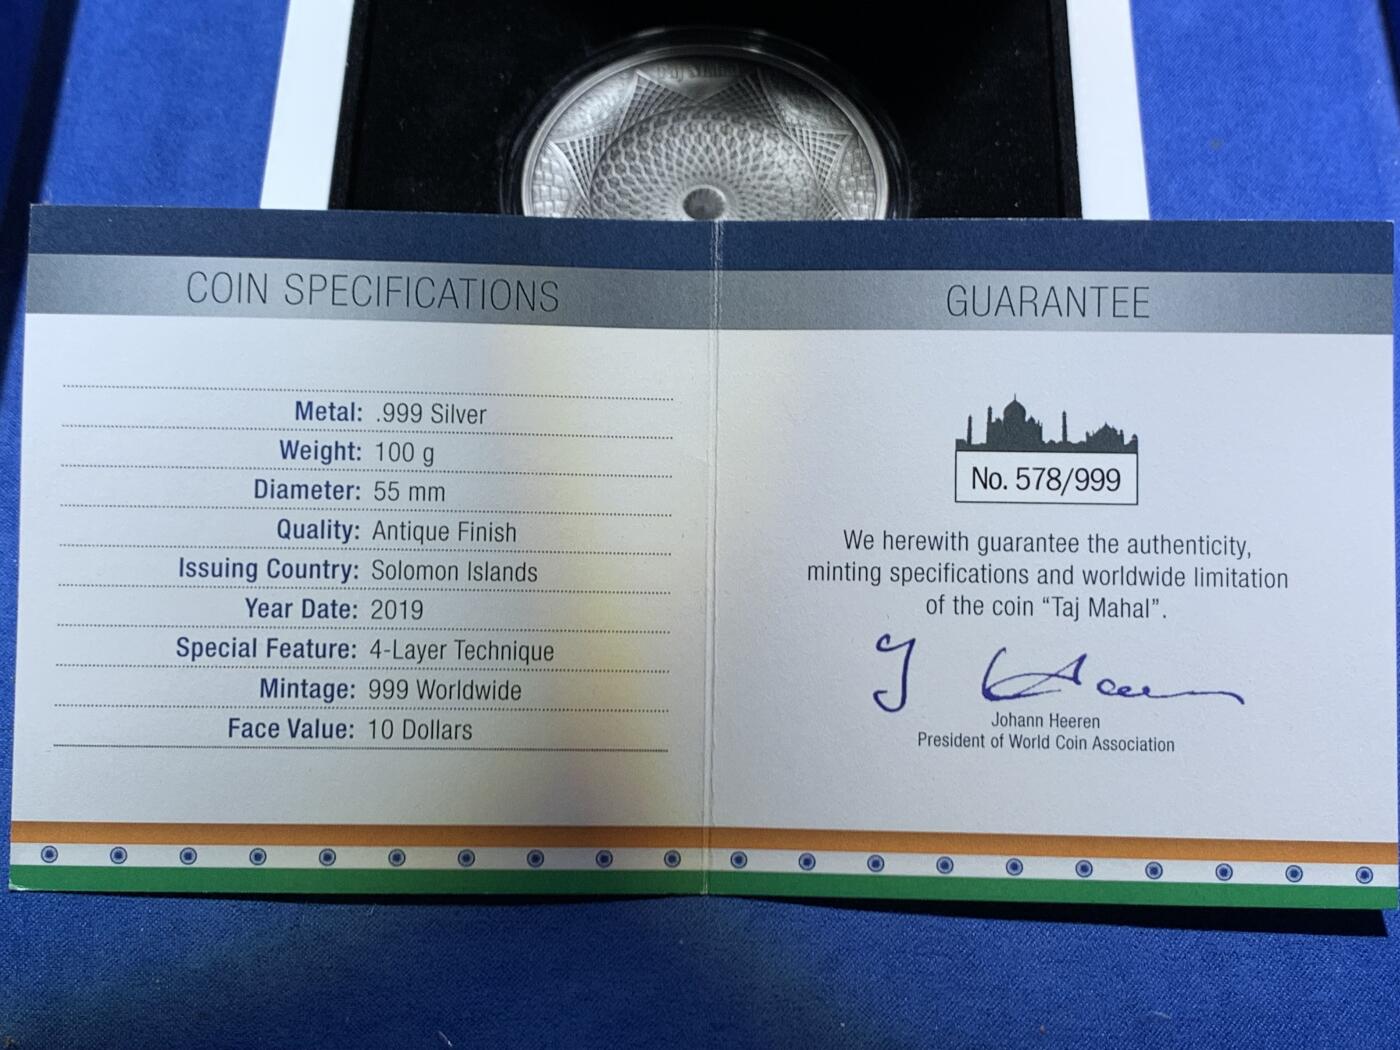 Taj Mahal
COIN SPECIFICATIONS
Metal: .999 Silver
Weight: 100 g
Diameter: 55 mm
Quality: Antique Finish
Issuing Country: Solomon Islands
Year Date: 2019
Special Feature: 4-Layer Technique
Mintage: 999 Worldwide
Face Value: 10 Dollars
GUARANTEE
No. 578/999
We herewith guarantee the authenticity,
minting specifications and worldwide limitation
of the coin “Taj Mahal”.
Johann Heeren
President of World Coin Association